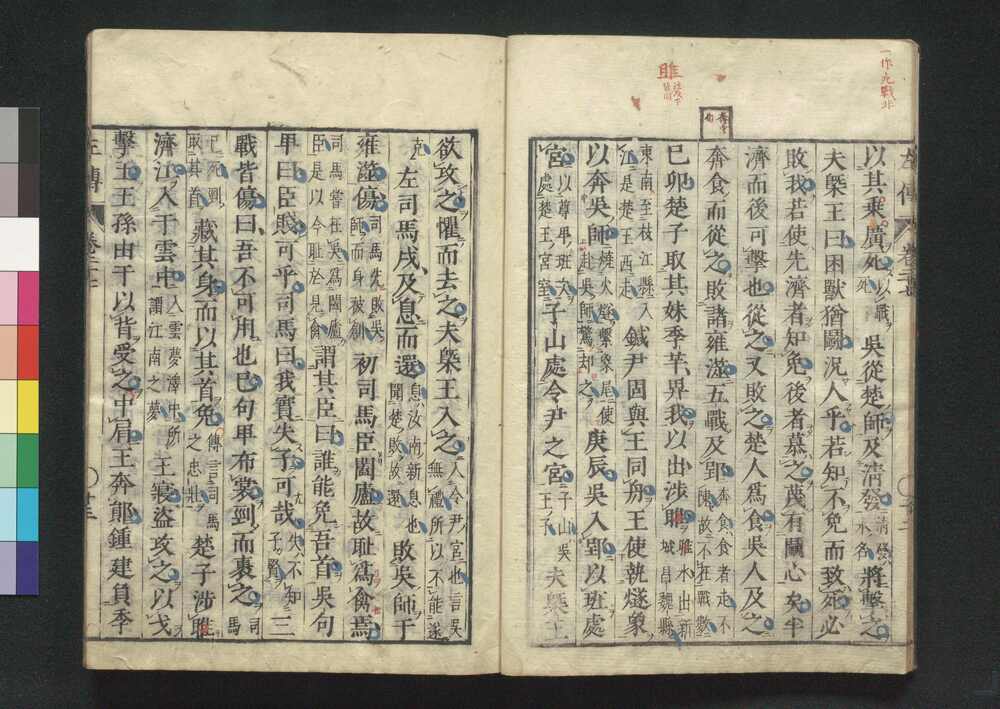 一作死戰非
雎
左傳
以其乘廣死以戰死吳從楚師及清發清發水名將擊之
夫槩王曰困獸猶鬭況人乎若知不免而致死必
敗我若使先濟者知免後者慕之蔑有鬭心矣半
濟而後可擊也從之又敗之楚人爲食吳人及之
奔食而從之敗諸雍澨五戰及郢奔食食者走不陳故不在戰數
己卯楚子取其妹季芊畀我以出涉雎雎水出新城昌魏縣
東南至枝江縣入江是楚王西走鍼尹固與王同舟王使執燧象
以奔吳師燒火燧繫象尾使赴吳師驚却之庚辰吳入郢以班處
宮以尊卑班次處楚王宮室子山處令尹之宮子山吳王子夫槩王
欲攻之懼而去之夫槩王入之入令尹宮也言吳無禮所以不能遂
克左司馬戌及息而還息汝南新息也聞楚敗故還敗吳師于
雍澨傷司馬先敗吳師而身被創初司馬臣闔廬故恥爲禽焉
司馬嘗在吳爲闔廬臣是以今恥於見禽謂其臣曰誰能免吾首吳句
卑曰臣賤可乎司馬曰我實失子可哉失不知子賢三
戰皆傷曰吾不可用也已句卑布裳剄而裹之司馬
已死剄取其首藏其身而以其首免傳言司馬之忠壯楚子涉雎
濟江入于雲中入雲夢澤中所謂江南之夢王寢盜攻之以戈
擊王王孫由于以背受之中肩王奔鄖鍾建負季
左傳